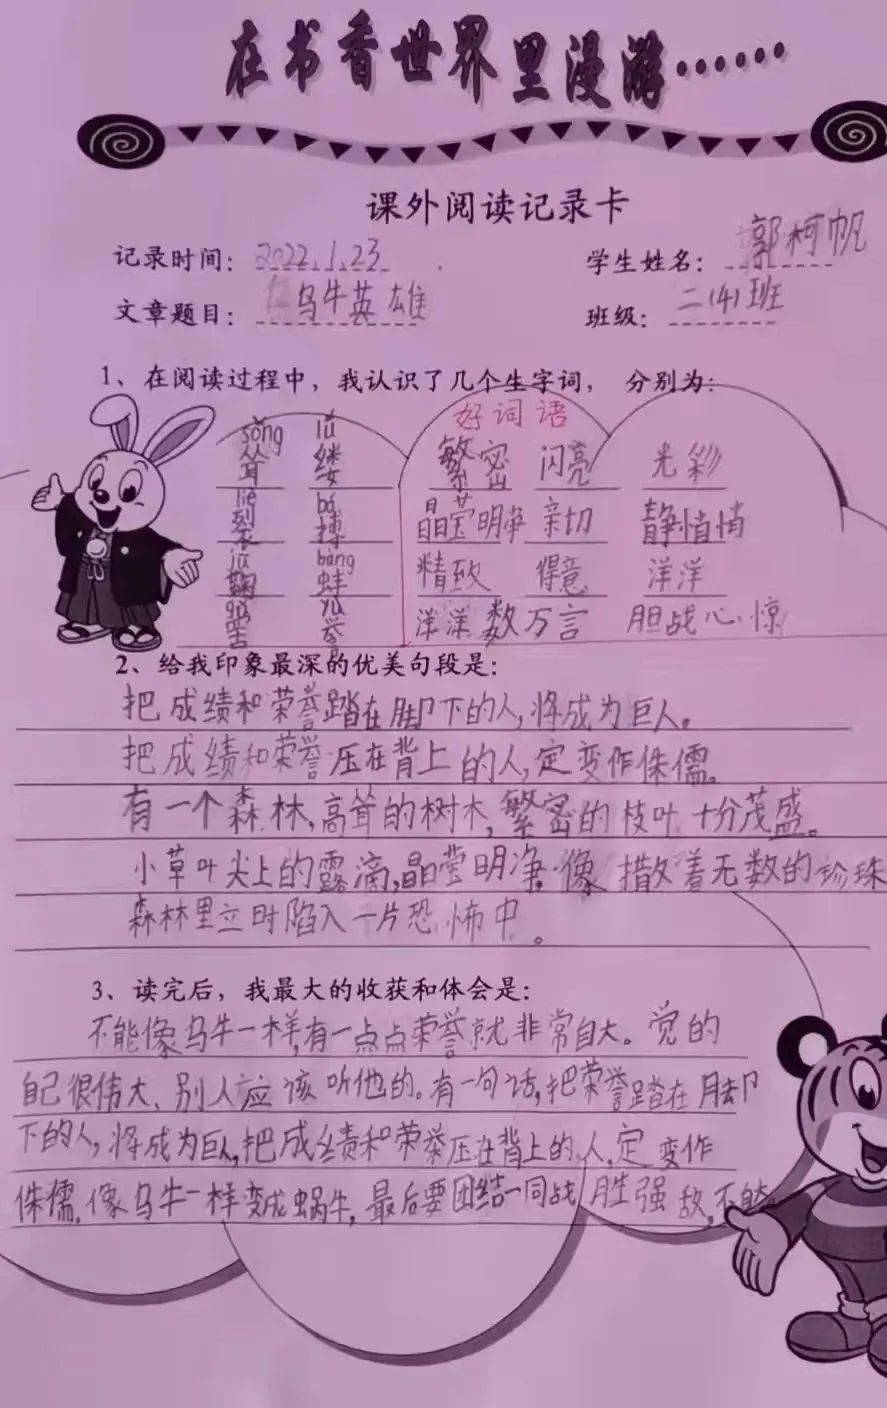 在书香世界里漫游……
课外阅读记录卡
记录时间：2022.1.23 学生姓名：郭柯帆
文章题目：乌牛英雄 班级：二(4)班
1、在阅读过程中，我认识了几个生字词， 分别为：
好词语
sǒng lǚ
耸 缕 繁密 闪亮 光彩
liè bó
裂 搏 晶莹明净 亲切 静悄悄
jū bàng
鞠 蚌 精致 得意 洋洋
yù
誉 洋洋数万言 胆战心惊
2、给我印象最深的优美句段是：
把成绩和荣誉踏在脚下的人,将成为巨人。
把成绩和荣誉压在背上的人,定变作侏儒。
有一个森林,高耸的树木,繁密的枝叶十分茂盛。
小草叶尖上的露滴,晶莹明净,像撒着无数的珍珠
森林里立时陷入一片恐怖中。
3、读完后，我最大的收获和体会是：
不能像乌牛一样,有一点点荣誉就非常自大。觉的
自己很伟大、别人应该听他的。有一句话,把荣誉踏在脚
下的人,将成为巨人,把成绩和荣誉压在背上的人,定变作
侏儒,像乌牛一样变成蜗牛,最后要团结一同战胜强敌,不能